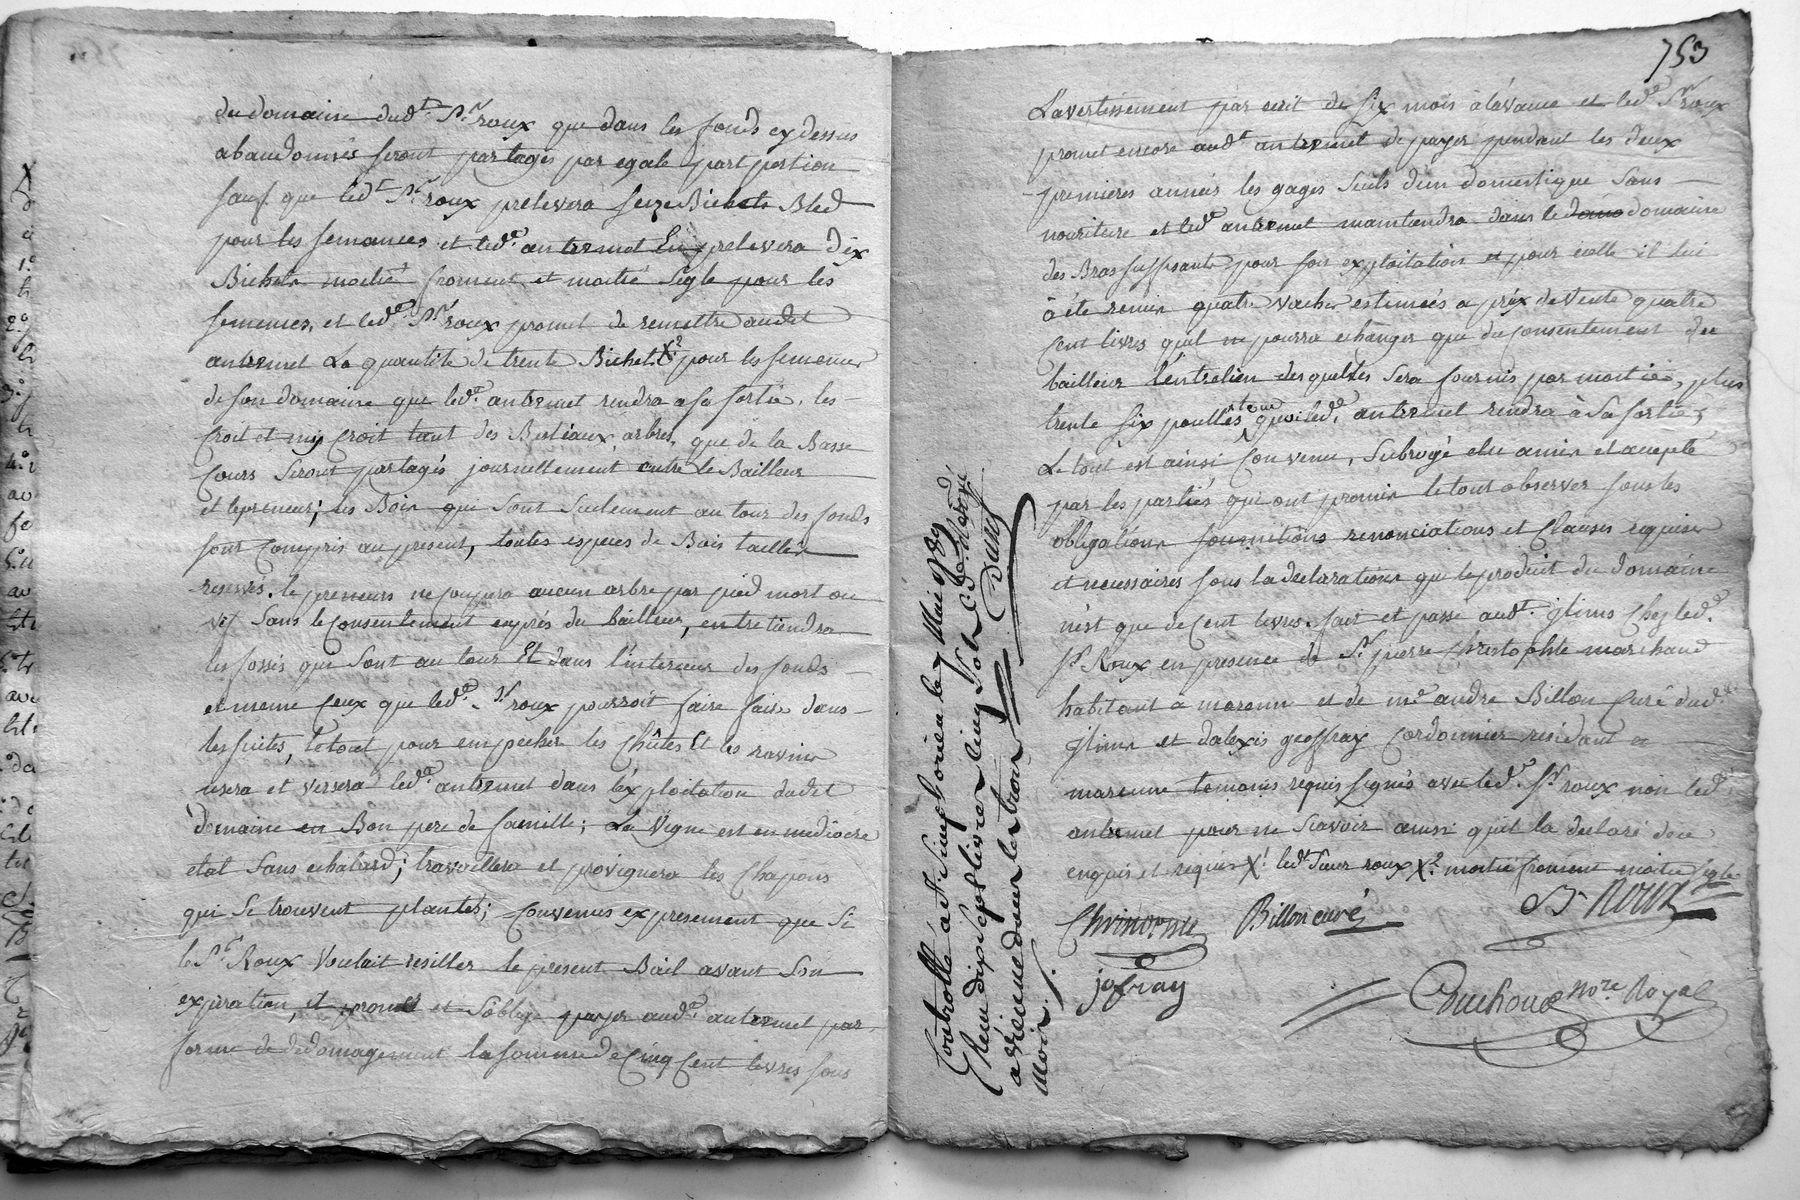 du domaine dudt Sr roux que dans les fonds cy dessus
abandonnés seront partagés par egale part portion
sauf que ledt Sr roux prelevera seize Bichets Bled
pour les semances et ledt antermet En prelevera dix
Bichets moitié froment et moitié segle pour les
semences, et ledt Sr roux promet de remettre audit
antermet La quantité de trente Bichets X2 pour les semences
de son domaine que ledt antermet rendra a sa sortie, les
Croit et mis Croit tant des Bestiaux arbres, que de la Basse
Cours seront partagés journellement entre le Bailleur
et le preneur; les Bois qui sont seulement au tour des fonds
sont Compris au present, toutes especes de Bois tailles
reservés. le preneurs ne coupera aucun arbre par pied mort ou
vif sans le Consentement exprés du bailleur, entretiendra
les fossés qui sont au tour Et dans l'interieur des fonds
et meme Ceux que ledt Sr roux pourroit faire faire dans
les suites, le tout pour empecher les Chûtes Et les ravins
usera et versera ledt antermet dans l'exploitation dudit
domaine en Bon pere de famille; La Vigne est en mediocre
etat sans echalard; travaillera et provignera les Chapons
qui se trouvent plantés; Convenus expressement que si
le Sr Roux Voulait resiller le present Bail avant son
expiration, il promet et s'oblige payer audt antermet par
forme de dedomagement la somme de Cinq Cent livres sous
753
L'avertissement par ecrit de six mois à l'avance et ledt Sr roux
promet encore audt antermet de payer pendant les deux
premieres années les gages seuls d'un domestique sans
nouriture et ledt antermet maintiendra dans le domaine
des Bras suffisants pour son exploitation et pour icelle il lui
a été remis quatre vaches estimeés a prix de Vente quatre
Cent livres qu'il ne pourra echanger que du Consentement du
bailleur l'entretien desquelles sera fournis par moitié, plus
trente six poulles que ledt antermet rendra à sa sortie,
Le tout est ainsi Convenu, subrogé elu amis et accepté
par les partiés qui ont promis le tout observer sous les
obligations soumitions renonciations et Clauses requises
et necessaires sous la declaration que le produit du domaine
n'est que de Cent livres. fait et passé audt jlins chez ledt
Sr Roux en presence de Sr pierre Christophle marchand
habitant a marenne et de me andré Billon Curé dudt
jlins et d'alexis geoffray Cordonnier residant a
marenne temoins requis signés avec ledt Sr roux non ledt
antermet pour ne sçavoir ainsi qu'il la declaré de ce
enquis et requis X1 ledt sieur roux X2 moitié froment moitié segle
Billon curé
Roux
jofray
Duchoud nore Royal
Controllé a St Simphorien le 7 Mai 1789
Reçu dix sept livres cinq sols
a Vienne dans les trois
mois.